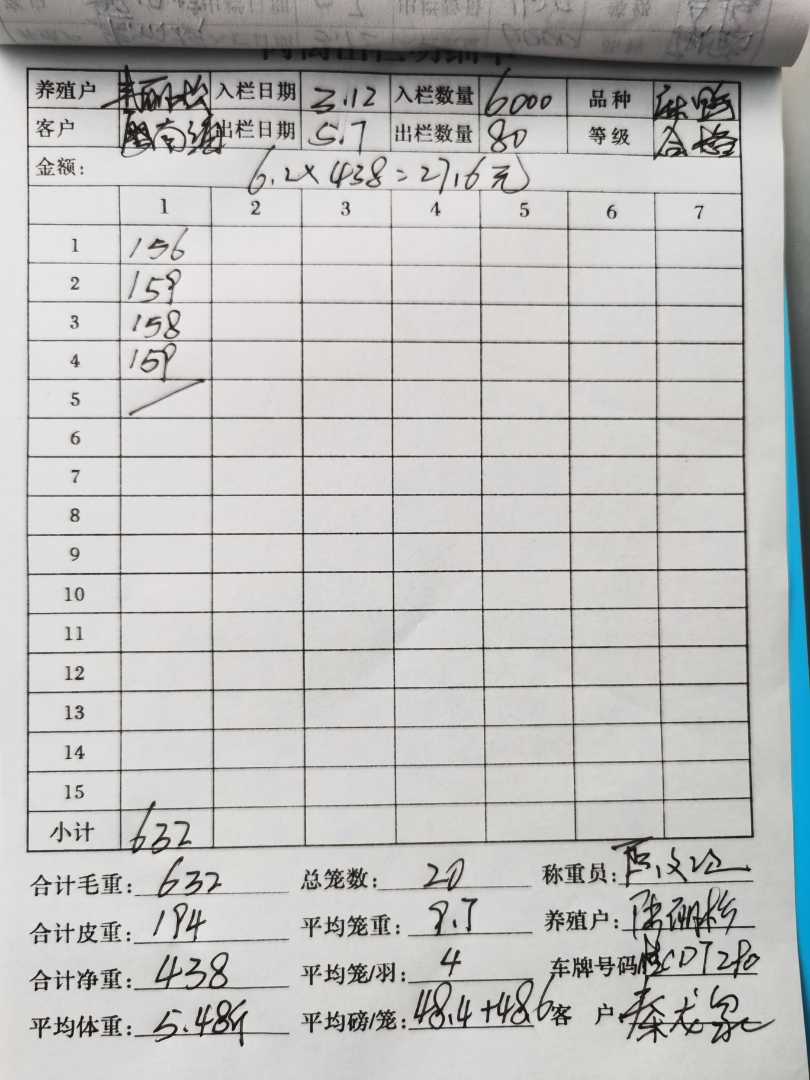 养殖户 入栏日期 3.12 入栏数量 6000 品种
客户 出栏日期 5.7 出栏数量 80 等级 合格
金额: 6.2×438=27.6元
1 2 3 4 5 6 7
1 156
2 159
3 158
4 159
5
6
7
8
9
10
11
12
13
14
15
小计 632
合计毛重: 632 总笼数: 20 称重员:
合计皮重: 194 平均笼重: 9.7 养殖户:
合计净重: 438 平均笼/羽: 4 车牌号码
平均体重: 5.48斤 平均磅/笼: 48.4+48.6 客 户: 秦龙